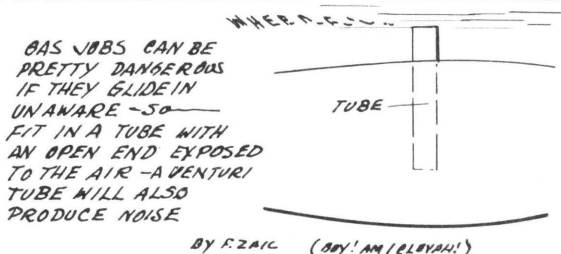 GAS JOBS CAN BE
PRETTY DANGEROUS
IF THEY GLIDE IN
UNAWARE - SO
FIT IN A TUBE WITH
AN OPEN END EXPOSED
TO THE AIR - A VENTURI
TUBE WILL ALSO
PRODUCE NOISE
TUBE
BY F. ZAIC (BOY! AM I CLEVAH!)